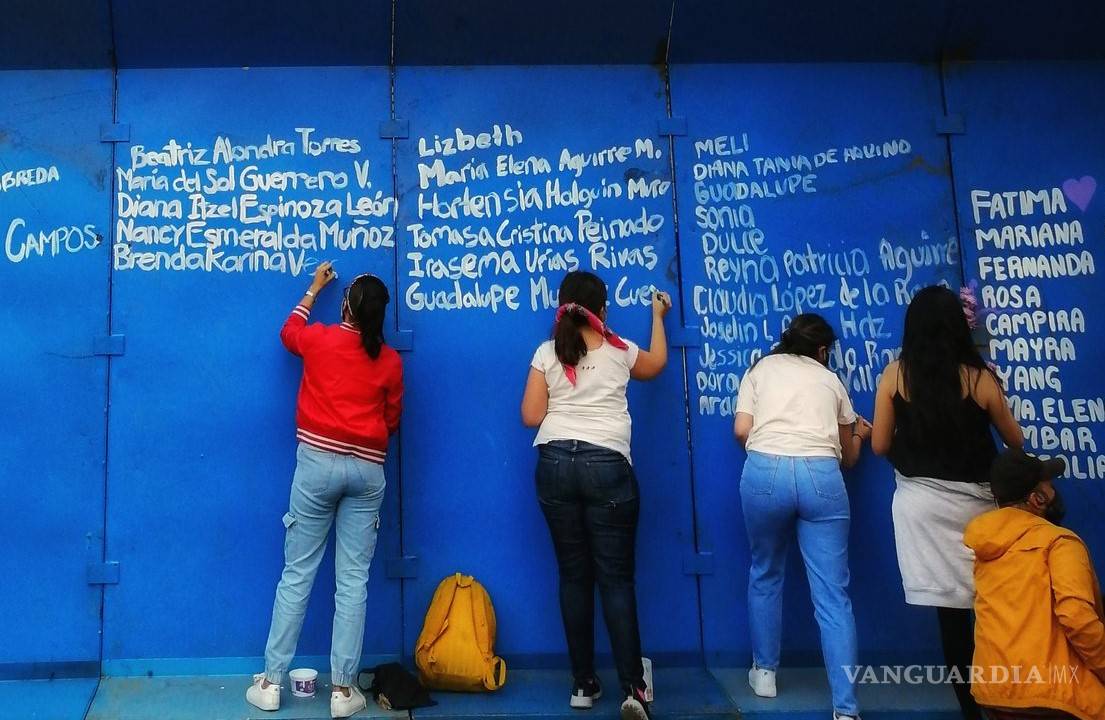 BREDA
CAMPOS
Beatriz Alondra Torres
María del Sol Guerrero V.
Diana Itzel Espinoza León
Nancy Esmeralda Muñoz
Brenda Karina
Lizbeth
María Elena Aguirre M.
Hortensia Holguin
Tomasa Cristina Peinado
Irasema Urias Rivas
Guadalupe
MELI
DIANA TANIA DE AQUINO
GUADALUPE
SONIA
DULCE
Reyna Patricia Aguirre
Claudia López de la
Joselin
Jessica
FATIMA
MARIANA
FERNANDA
ROSA
CAMPIRA
MAYRA
YANG
MA. ELEN
MBAR
VANGUARDIA|MX